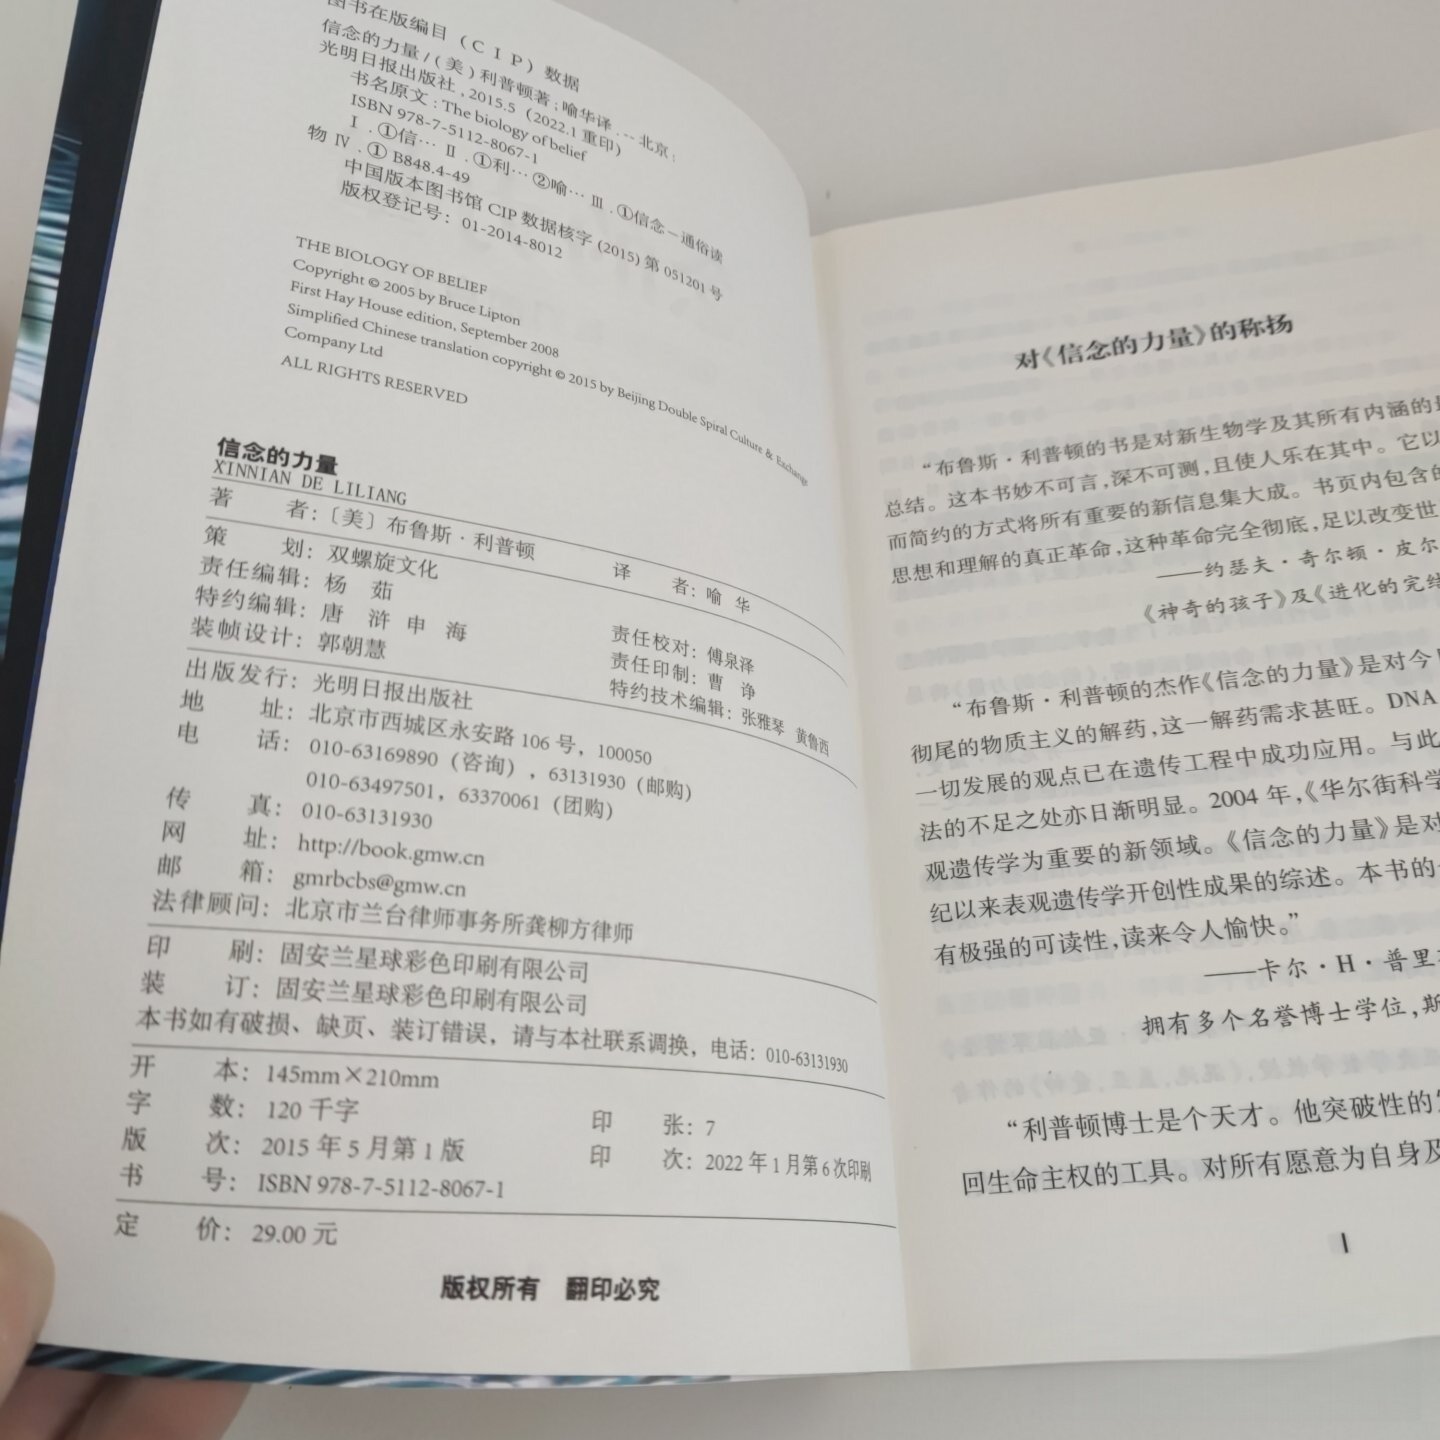 图书在版编目（CIP）数据
信念的力量/（美）利普顿著；喻华译.--北京：
光明日报出版社，2015.5（2022.1重印）
书名原文：The biology of belief
ISBN 978-7-5112-8067-1
Ⅰ.①信… Ⅱ.①利…②喻… Ⅲ.①信念－通俗读
物 Ⅳ.① B848.4-49
中国版本图书馆 CIP 数据核字 (2015) 第 051201 号
版权登记号：01-2014-8012
THE BIOLOGY OF BELIEF
Copyright © 2005 by Bruce Lipton
First Hay House edition, September 2008
Simplified Chinese translation copyright © 2015 by Beijing Double Spiral Culture & Exchange
Company Ltd
ALL RIGHTS RESERVED
信念的力量
XINNIAN DE LILIANG
著 者：〔美〕布鲁斯·利普顿 译 者：喻 华
策 划：双螺旋文化
责任编辑：杨 茹 责任校对：傅泉泽
特约编辑：唐 浒 申 海 责任印制：曹 诤
装帧设计：郭朝慧 特约技术编辑：张雅琴 黄鲁西
出版发行：光明日报出版社
地 址：北京市西城区永安路 106 号，100050
电 话：010-63169890（咨询），63131930（邮购）
010-63497501，63370061（团购）
传 真：010-63131930
网 址：http://book.gmw.cn
邮 箱：gmrbcbs@gmw.cn
法律顾问：北京市兰台律师事务所龚柳方律师
印 刷：固安兰星球彩色印刷有限公司
装 订：固安兰星球彩色印刷有限公司
本书如有破损、缺页、装订错误，请与本社联系调换，电话：010-63131930
开 本：145mm×210mm
字 数：120 千字 印 张：7
版 次：2015 年 5 月第 1 版 印 次：2022 年 1 月第 6 次印刷
书 号：ISBN 978-7-5112-8067-1
定 价：29.00 元
版权所有 翻印必究
对《信念的力量》的称扬
“布鲁斯·利普顿的书是对新生物学及其所有内涵的
总结。这本书妙不可言，深不可测，且使人乐在其中。它以
而简约的方式将所有重要的新信息集大成。书页内包含的
思想和理解的真正革命，这种革命完全彻底，足以改变世
——约瑟夫·奇尔顿·皮尔
《神奇的孩子》及《进化的完结
“布鲁斯·利普顿的杰作《信念的力量》是对今
彻尾的物质主义的解药，这一解药需求甚旺。DNA
一切发展的观点已在遗传工程中成功应用。与此
法的不足之处亦日渐明显。2004 年，《华尔街科学
观遗传学为重要的新领域。《信念的力量》是对
纪以来表观遗传学开创性成果的综述。本书的
有极强的可读性，读来令人愉快。”
——卡尔·H·普里
拥有多个名誉博士学位，斯
“利普顿博士是个天才。他突破性的
回生命主权的工具。对所有愿意为自身及
I